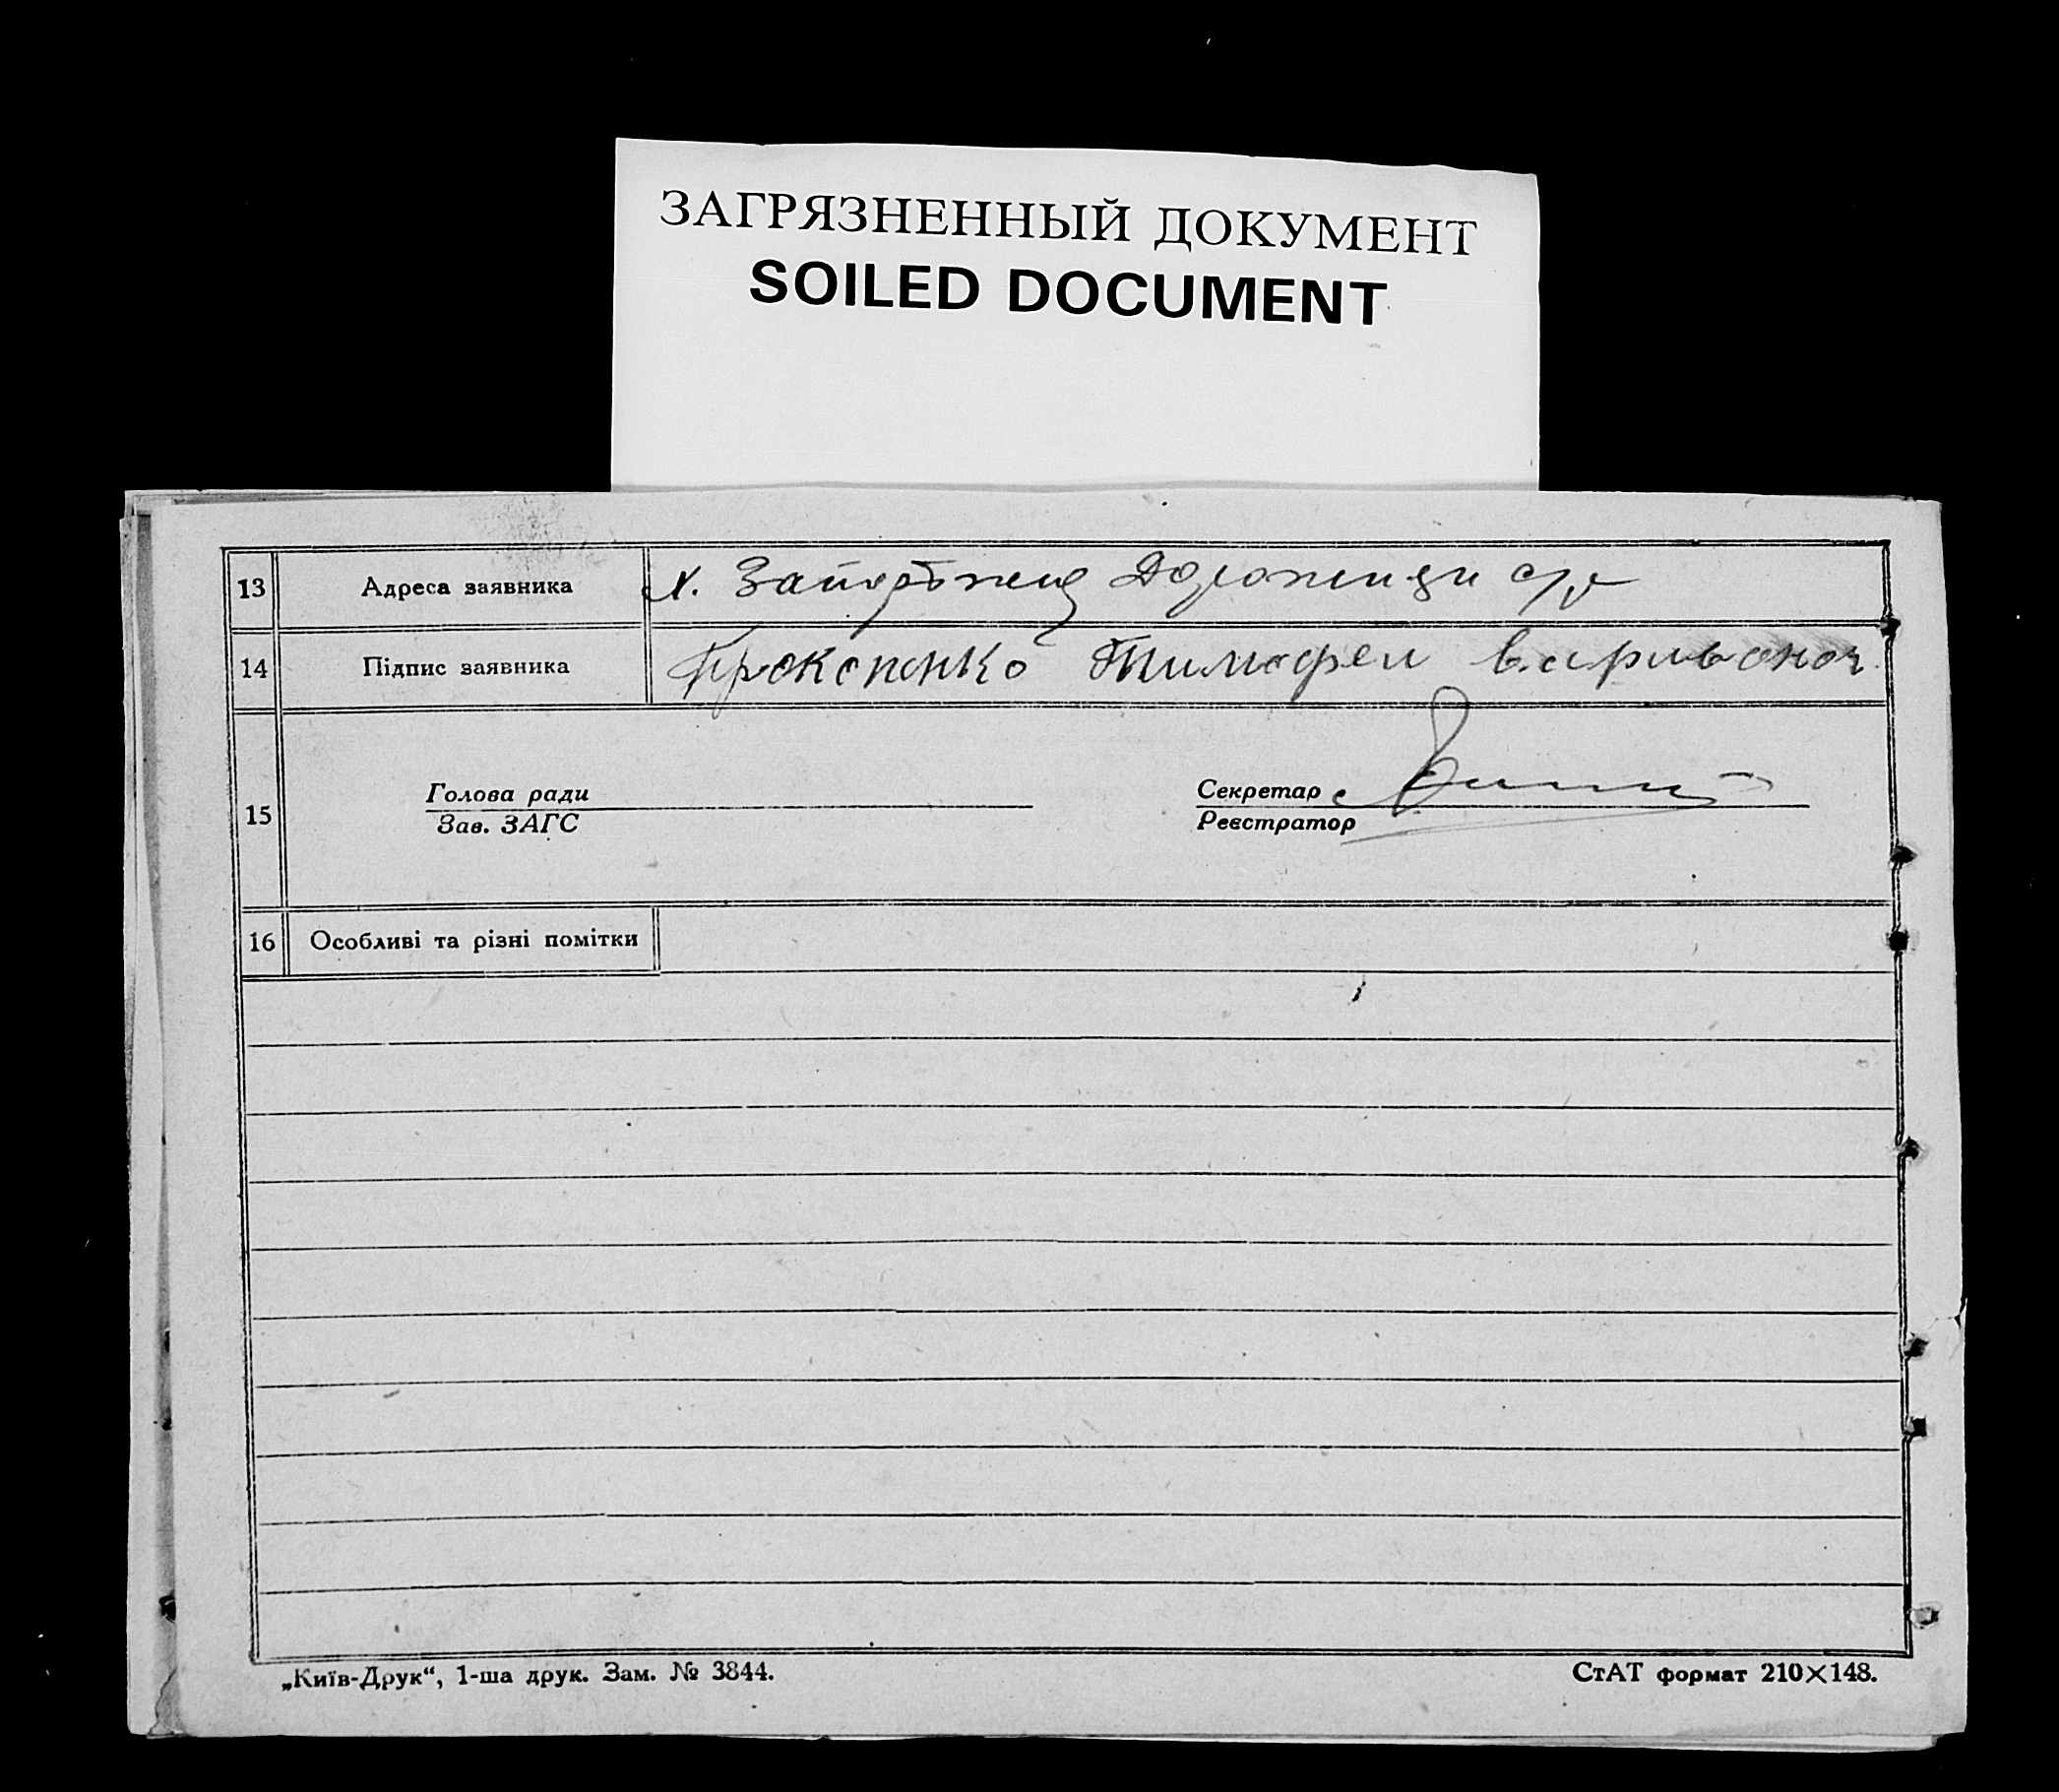 ЗАГРЯЗНЕННЫЙ ДОКУМЕНТ
SOILED DOCUMENT
13 Адреса заявника х. с/р
14 Підпис заявника Прокопенко Тимофей
15
Голова ради
Зав. ЗАГС
Секретар
Реєстратор
16 Особливі та різні помітки
„Київ-Друк“, 1-ша друк. Зам. № 3844.
СтАТ формат 210×148.